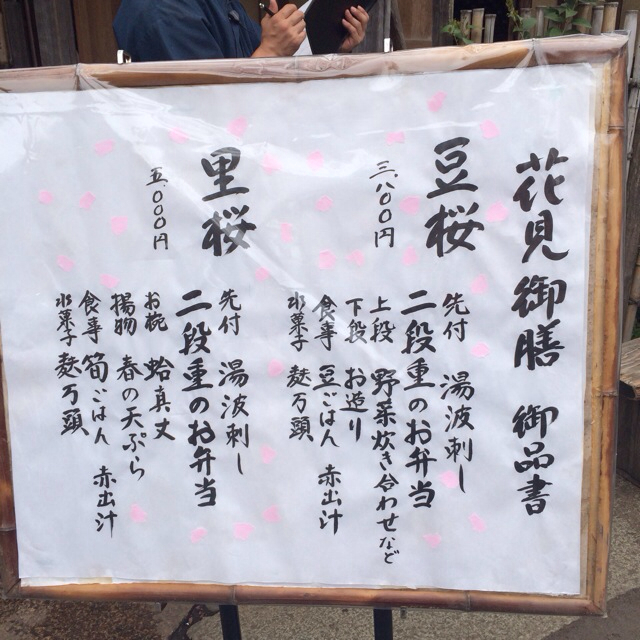 花見御膳 御品書
豆桜
三、八〇〇円
先付 湯波刺し
二段重のお弁当
上段 野菜炊き合わせなど
下段 お造り
食事 豆ごはん 赤出汁
水菓子 麩万頭
里桜
五、〇〇〇円
先付 湯波刺し
二段重のお弁当
お椀 蛤真丈
揚物 春の天ぷら
食事 筍ごはん 赤出汁
水菓子 麩万頭